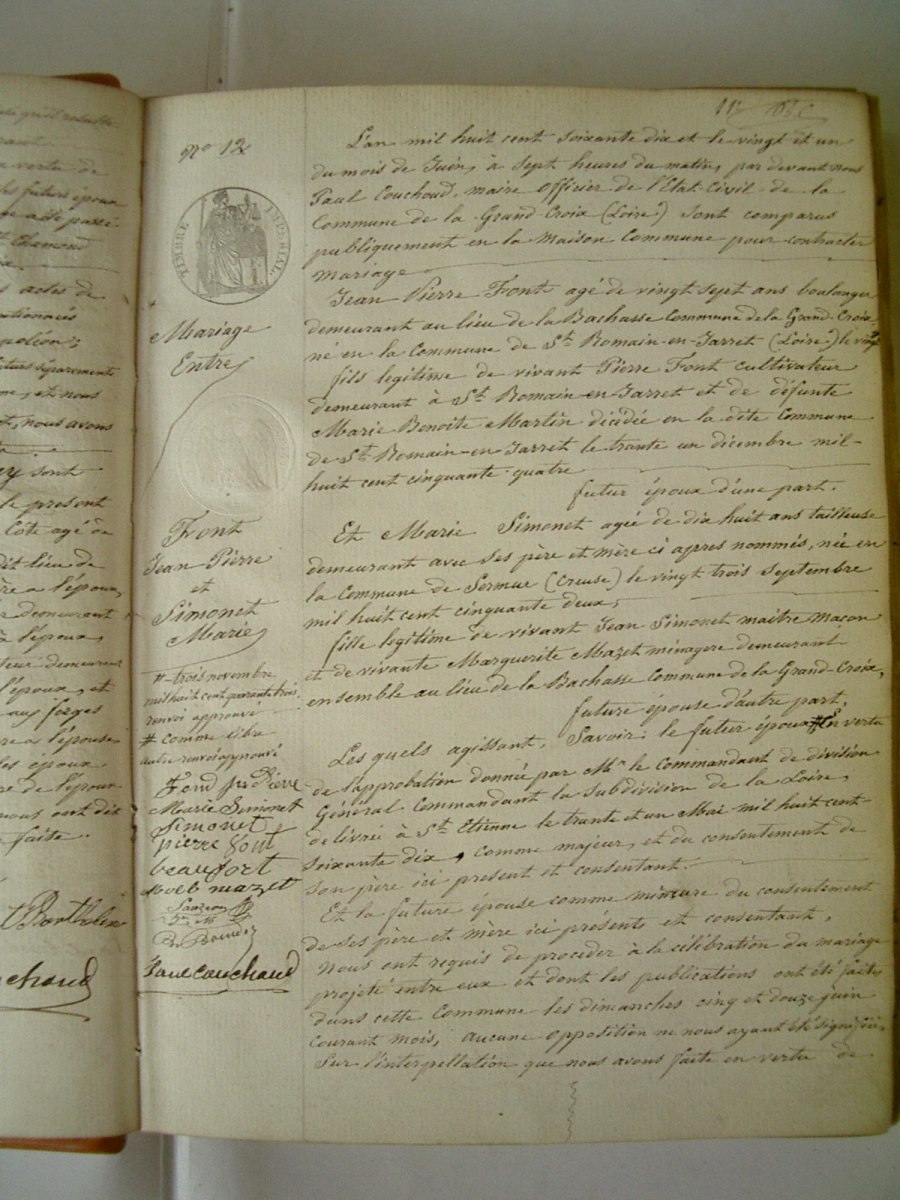 aure.
vertu de
les futurs époux
acte passé
St Chamond
actes de
nous
et, nous avons
sont
le present
Cote agé de
dit lieu de
a l'époux
demeurant
à l'époux,
demeurant
l'époux, et
aux forges
a l'épouse
les époux
de l'époux
nous ont dit
faite.
chaud
No 12
TIMBRE IMPERIAL
Mariage
Entre
Font
Jean Pierre
et
Simonet
Marie
# trois novembre
mil huit cent quarante trois
renvoi approuvé
# comme libre
autre renvoi approuvé
Marie Simonet
Simonet
pierre font
beaufort
mazet
Paul Couchoud
L'an mil huit cent soixante dix et le vingt et un
du mois de Juin, à Sept heures du matin, par devant nous
Paul Couchoud, maire officier de l'Etat-Civil de la
Commune de la Grand-Croix (Loire) sont comparus
publiquement en la maison Commune pour contracter
mariage
Jean Pierre Font agé de vingt sept ans boulanger
demeurant au lieu de la Bachasse Commune de la Grand-Croix
né en la Commune de St Romain-en-Jarret (Loire) le vingt
fils legitime de vivant Pierre Font cultivateur
demeurant à St Romain-en-Jarret et de défunte
Marie Benoite Martin décédée en la dite Commune
de St Romain-en-Jarret le trante un dicembre mil-
huit cent cinquante-quatre
futur époux d'une part.
Et Marie Simonet agée de dix huit ans tailleuse
demeurant avec ses père et mère ci apres nommés, née en
la Commune de Sermur (Creuse) le vingt trois septembre
mil huit cent cinquante deux,
fille legitime de vivant Jean Simonet maitre maçon
et de vivante Marguerite Mazet ménagere demeurant
ensemble au lieu de la Bachasse Commune de la Grand-Croix,
future épouse d'autre part.
Les quels agissant, Savoir: le futur époux # En vertu
de l'approbation donnée par Mr le Commandant de division
Général Commandant la Subdivision de la Loire,
délivré à St Etienne le trante et un Mai mil huit cent-
soixante dix, comme majeur, et du consentement de
son père ici present et consentant.
Et la future epouse comme mineure du consentement
de ses père et mère ici présents et consentant,
Nous ont requis de procéder à la célébration du mariage
projeté entre eux et dont les publications ont été faites
dans cette Commune les dimanches cinq et douze juin
courant mois, aucune opposition ne nous ayant été signifiée,
Sur l'interpellation que nous avons faite en vertu de